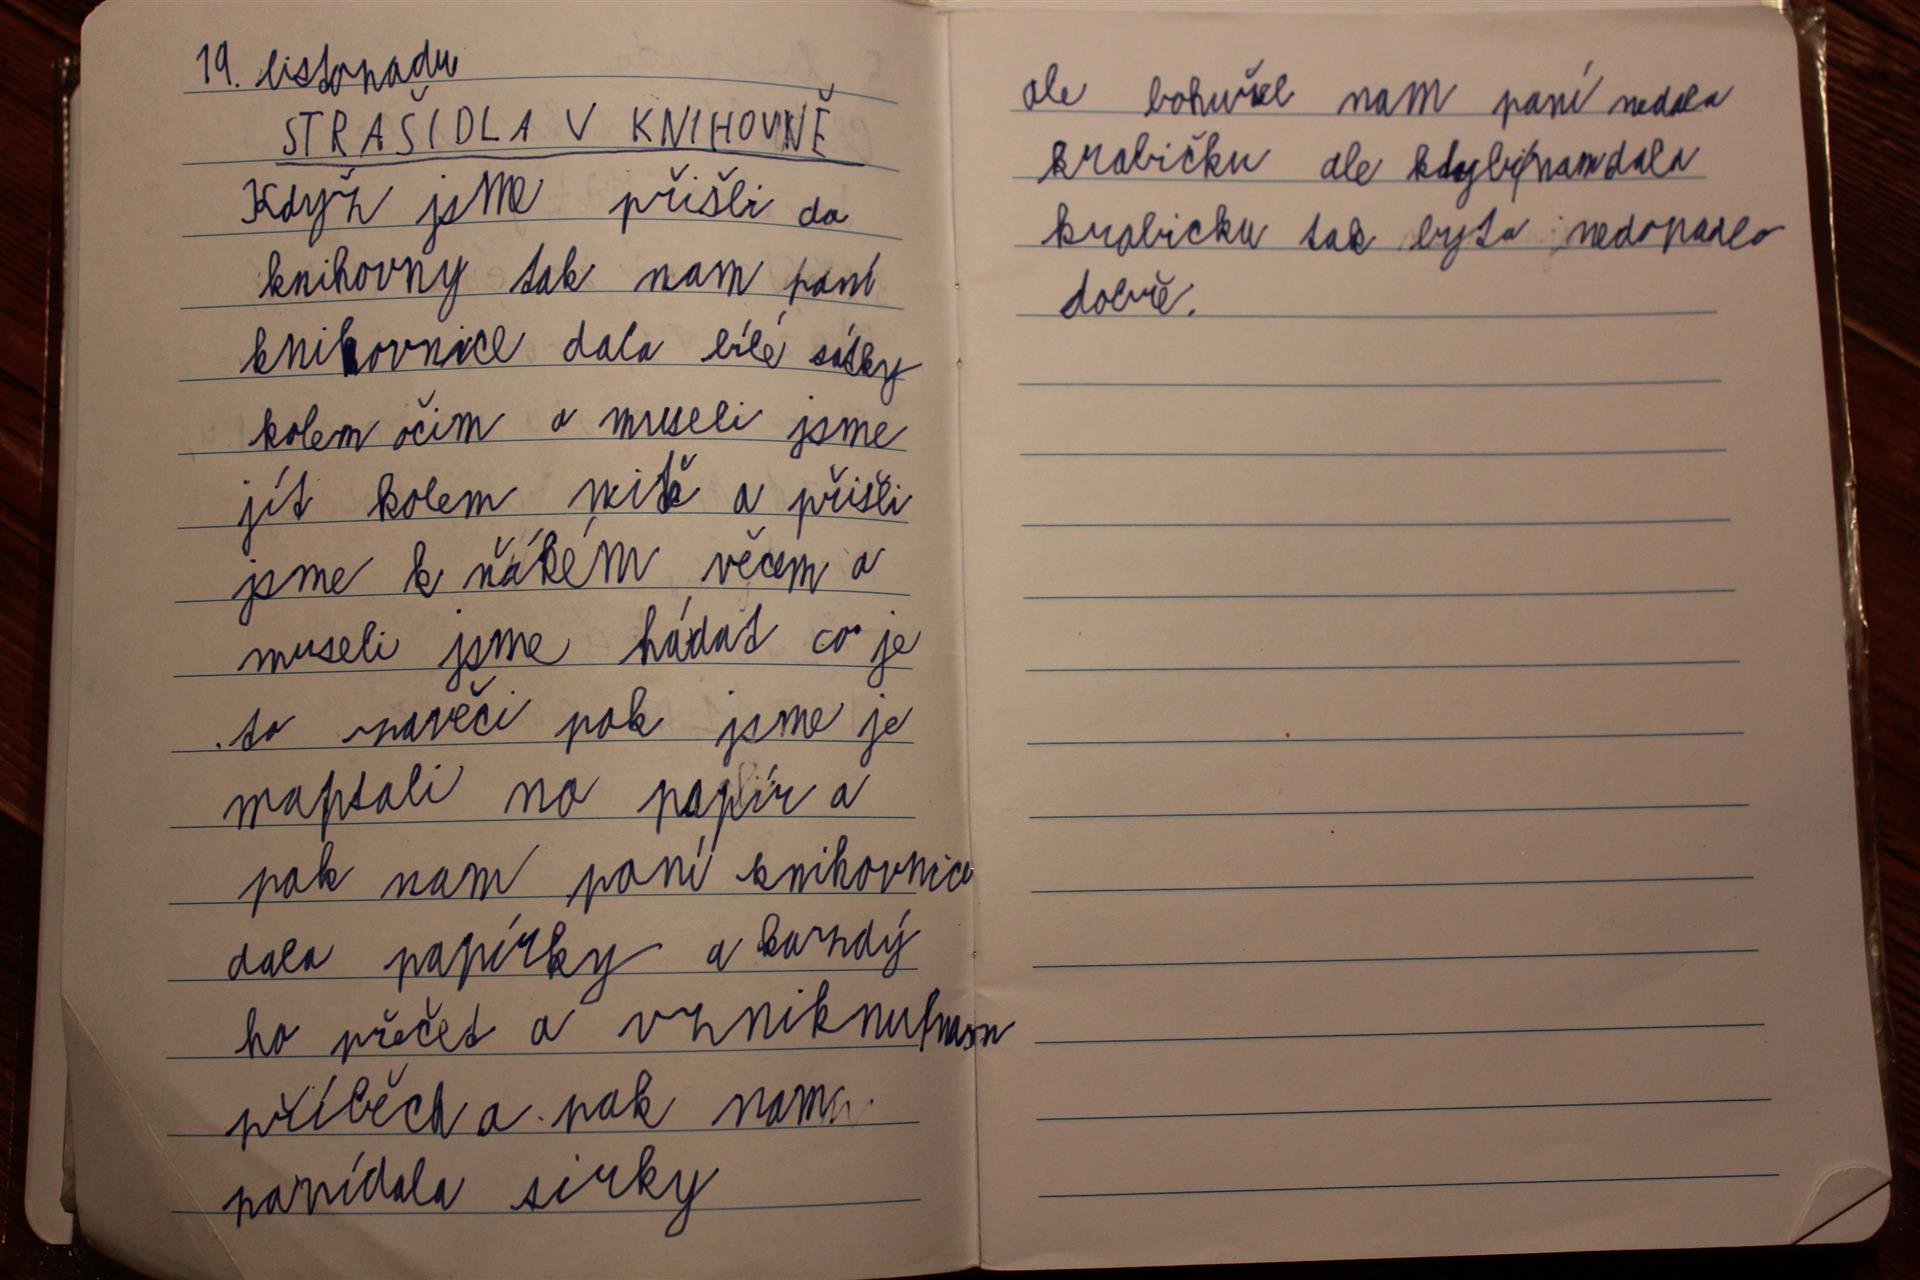 19. listopadu
STRAŠIDLA V KNIHOVNĚ
Když jsme přišli do
knihovny tak nam paní
knihovnice dala bílé sátky
kolem očim a museli jsme
jít kolem nitě a přišli
jsme k ňákém věcem a
museli jsme hádat co je
to navěci pak jsme je
maptali na papír a
pak nam paní knihovnice
dala papírky a karzdý
ho přečet a vzniknul nam
příběch a pak nam
panídala sirky
ale bohužel nam paní nedala
krabičku ale kdyby nam dala
krabicku tak byto nedopadlo
dobře.